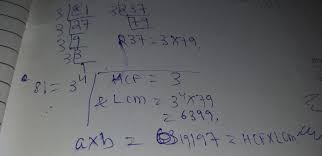 3 81 3 237
3 27 79
3 9 237 = 3×79,
3
81 = 3^4 HCF = 3
& LCM = 3^4×79
= 6399,
a×b = 19197 = HCF×LCM